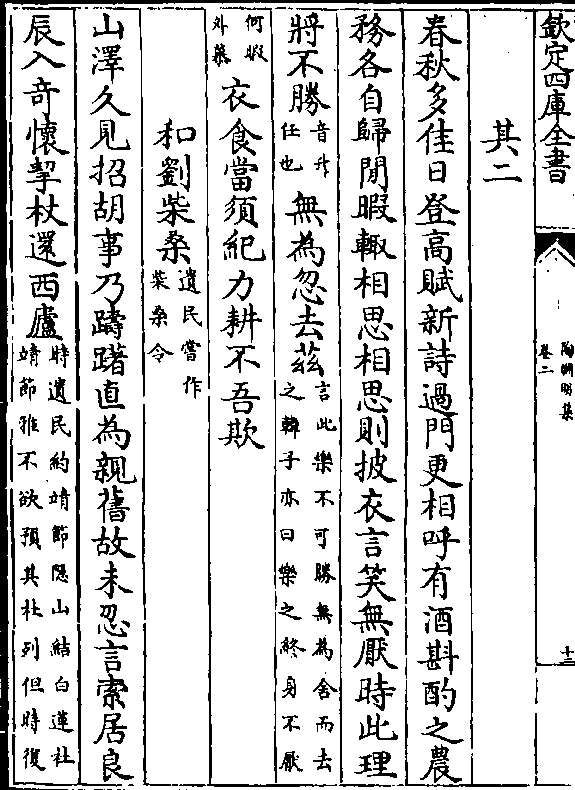 欽定四庫全書
陶淵明集
卷二
十三
其二
春秋多佳日登高賦新詩過門更相呼有酒斟酌之農
務各自歸閒暇輒相思相思則披衣言笑無厭時此理
將不勝音升任也無為忽去茲言此樂不可勝無為舍而去之韓子亦曰樂之終身不厭
何暇外慕衣食當須紀力耕不吾欺
和劉柴桑遺民嘗作柴桑令
山澤久見招胡事乃躊躇直為親舊故未忍言索居良
辰入奇懷挈杖還西廬時遺民約靖節隱山結白蓮社靖節雅不欲預其社列但時復